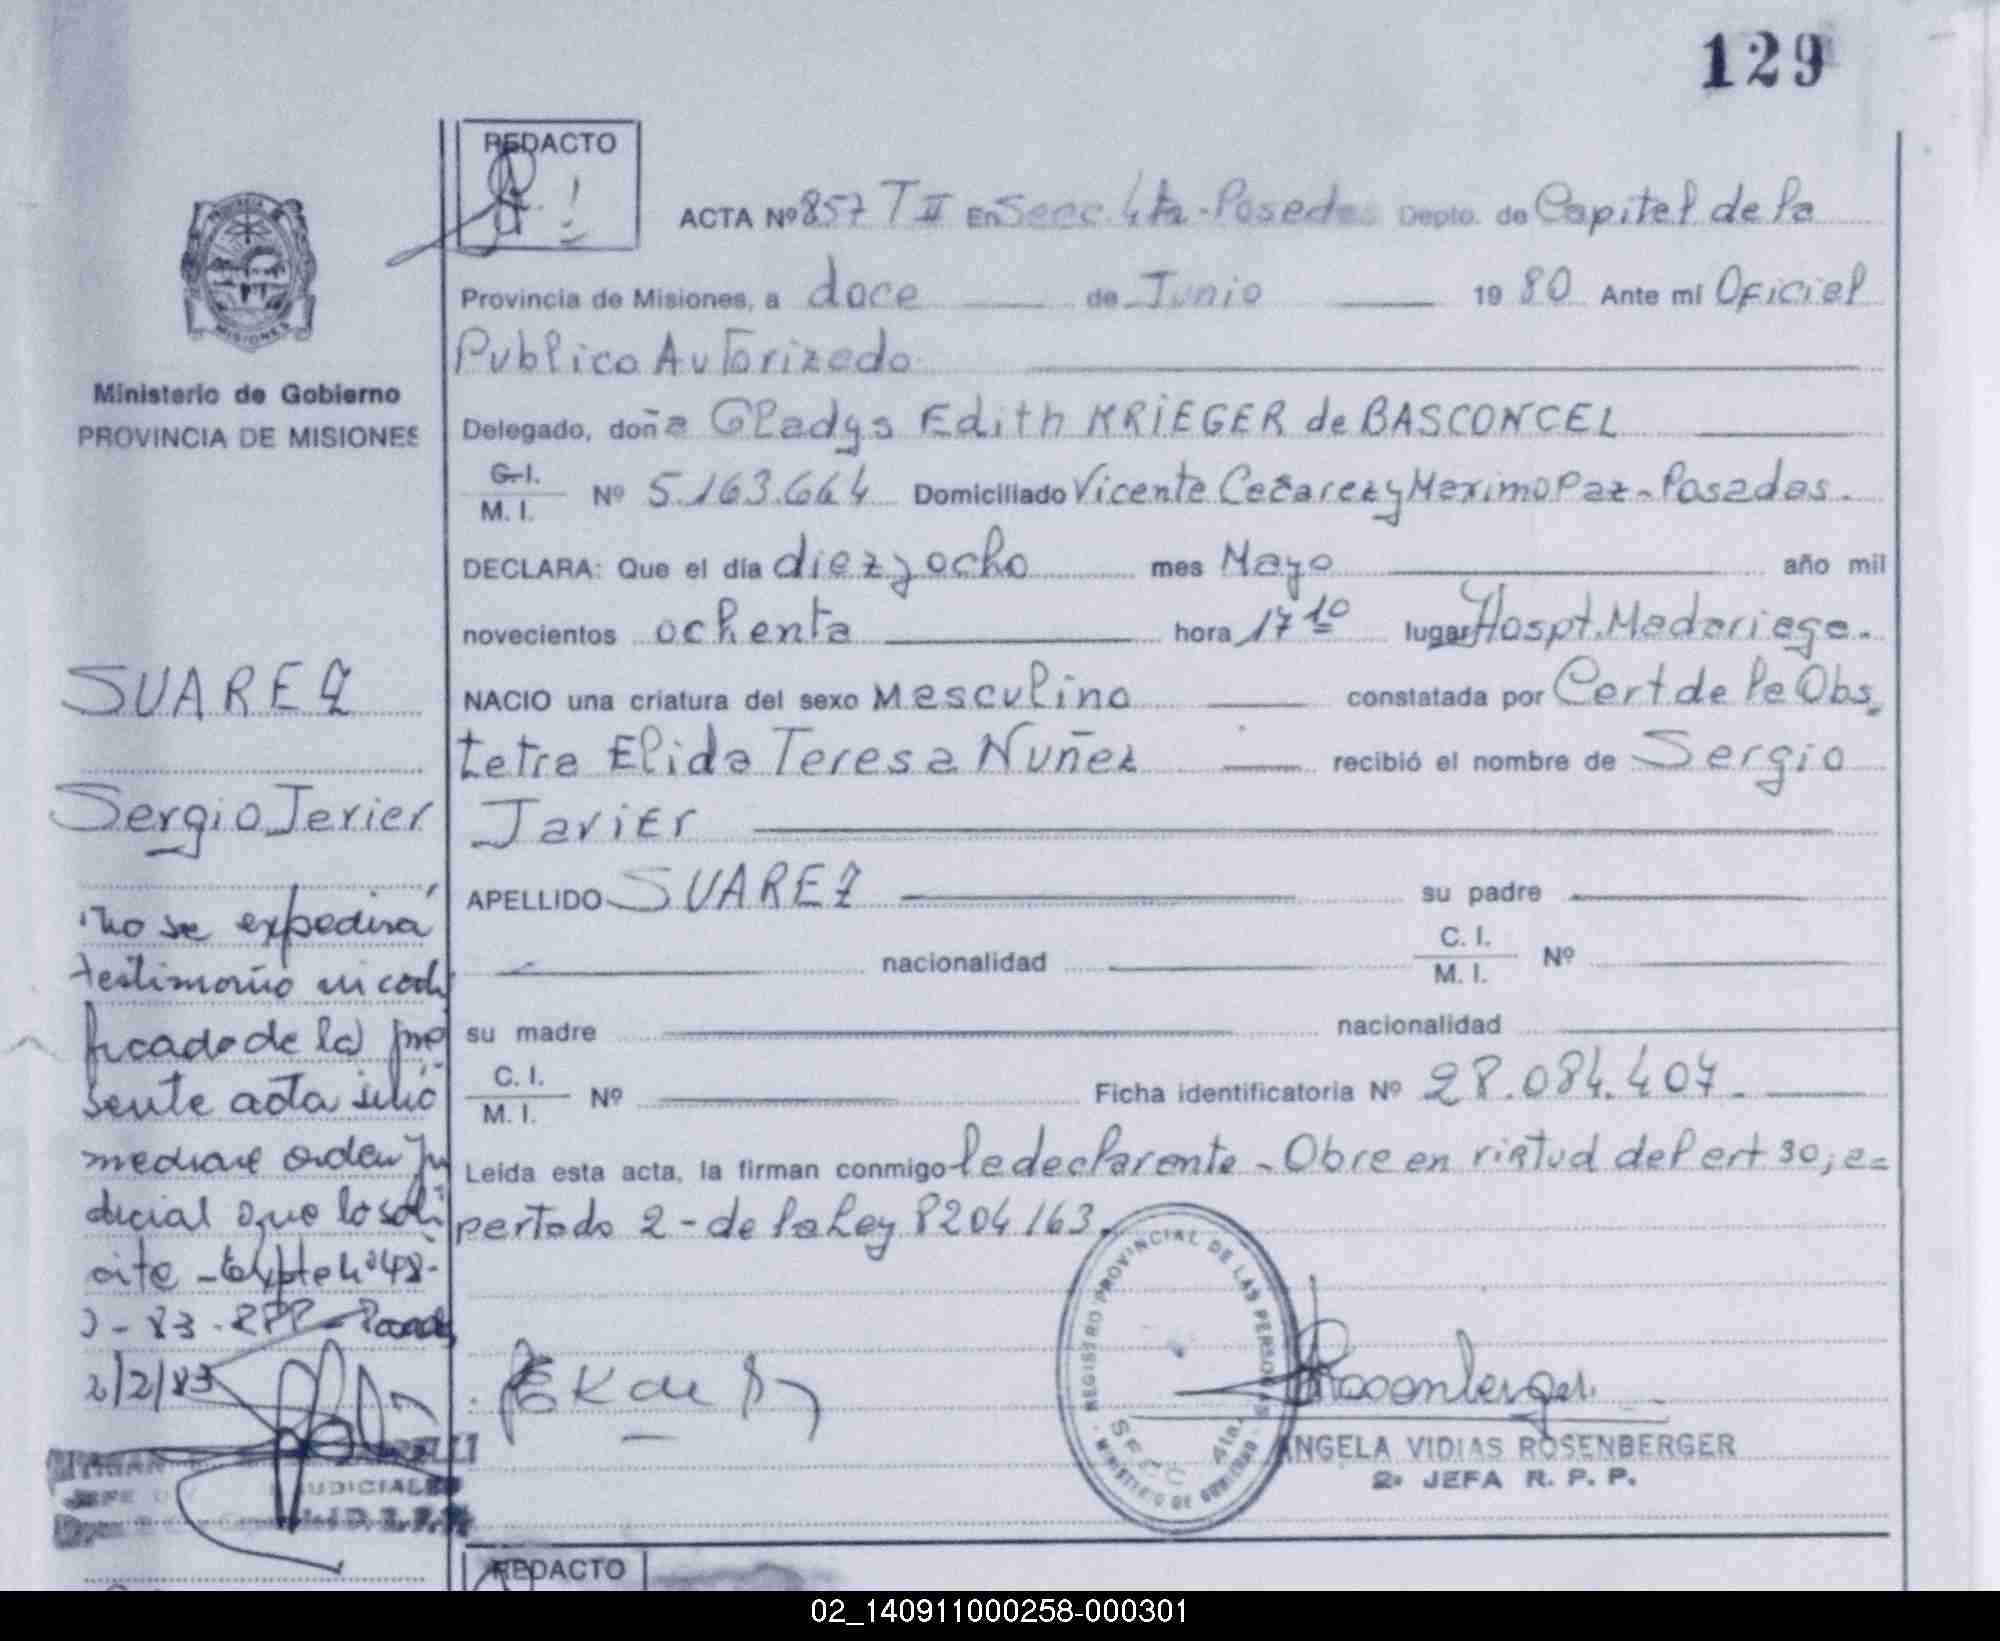 129
REDACTO
ACTA Nº 857 T II En Secc. 4ta - Posadas Depto. de Capital de la
Provincia de Misiones, a doce de Junio 19 80 Ante mi Oficial
Publico Autorizado
Delegado, doña Gladys Edith KRIEGER de BASCONCEL
C.I.
M. I. Nº 5.163.664 Domiciliado Vicente y Maximo Paz - Posadas.
DECLARA: Que el día diez y ocho mes Mayo año mil
novecientos ochenta hora 17 10 lugar Hospt. Madariaga.
NACIO una criatura del sexo Masculino constatada por Cert de la Obs
tetra Elida Teresa Nuñez recibió el nombre de Sergio
Javier
APELLIDO SUAREZ su padre
nacionalidad C. I.
M. I. Nº
su madre nacionalidad
C. I.
M. I. Nº Ficha identificatoria Nº 28.084.407.
Leída esta acta, la firman conmigo la declarante - Obre en virtud del art 30, a=
partado 2 - de la Ley 8204/63.
REGISTRO PROVINCIAL DE LAS PERSONAS
SECC 4ta.
MINISTERIO DE GOBIERNO
Rosenberger
ANGELA VIDIAS ROSENBERGER
2ª JEFA R. P. P.
REDACTO
Ministerio de Gobierno
PROVINCIA DE MISIONES
SUAREZ
Sergio Javier
no se expedirá
testimonio ni certi
ficado de la pre
sente acta sino
mediare orden Ju
dicial que lo soli
cite - Expte nº 48-
83 - RPP -
2/2/83
JEFE JUDICIALES
02_140911000258-000301